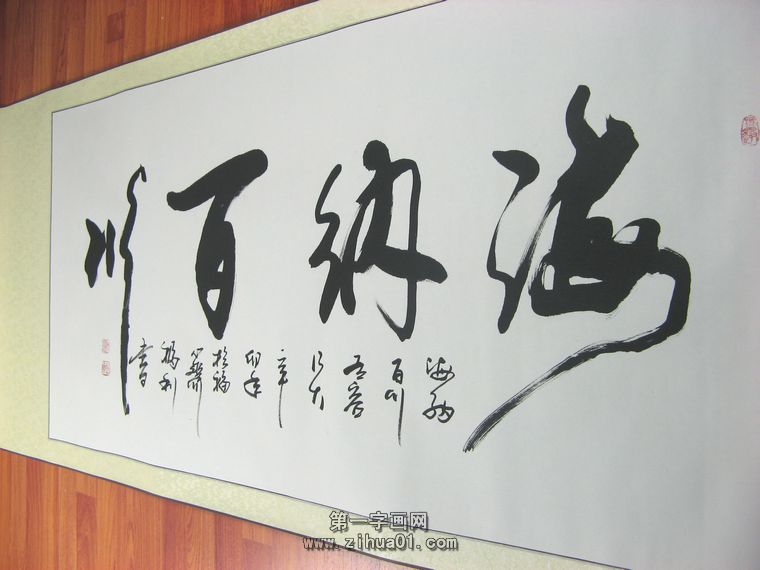 海纳百川
海纳
百川
有容
乃大
辛
卯年
于福
杨利
书
第一字画网
www.zihua01.com